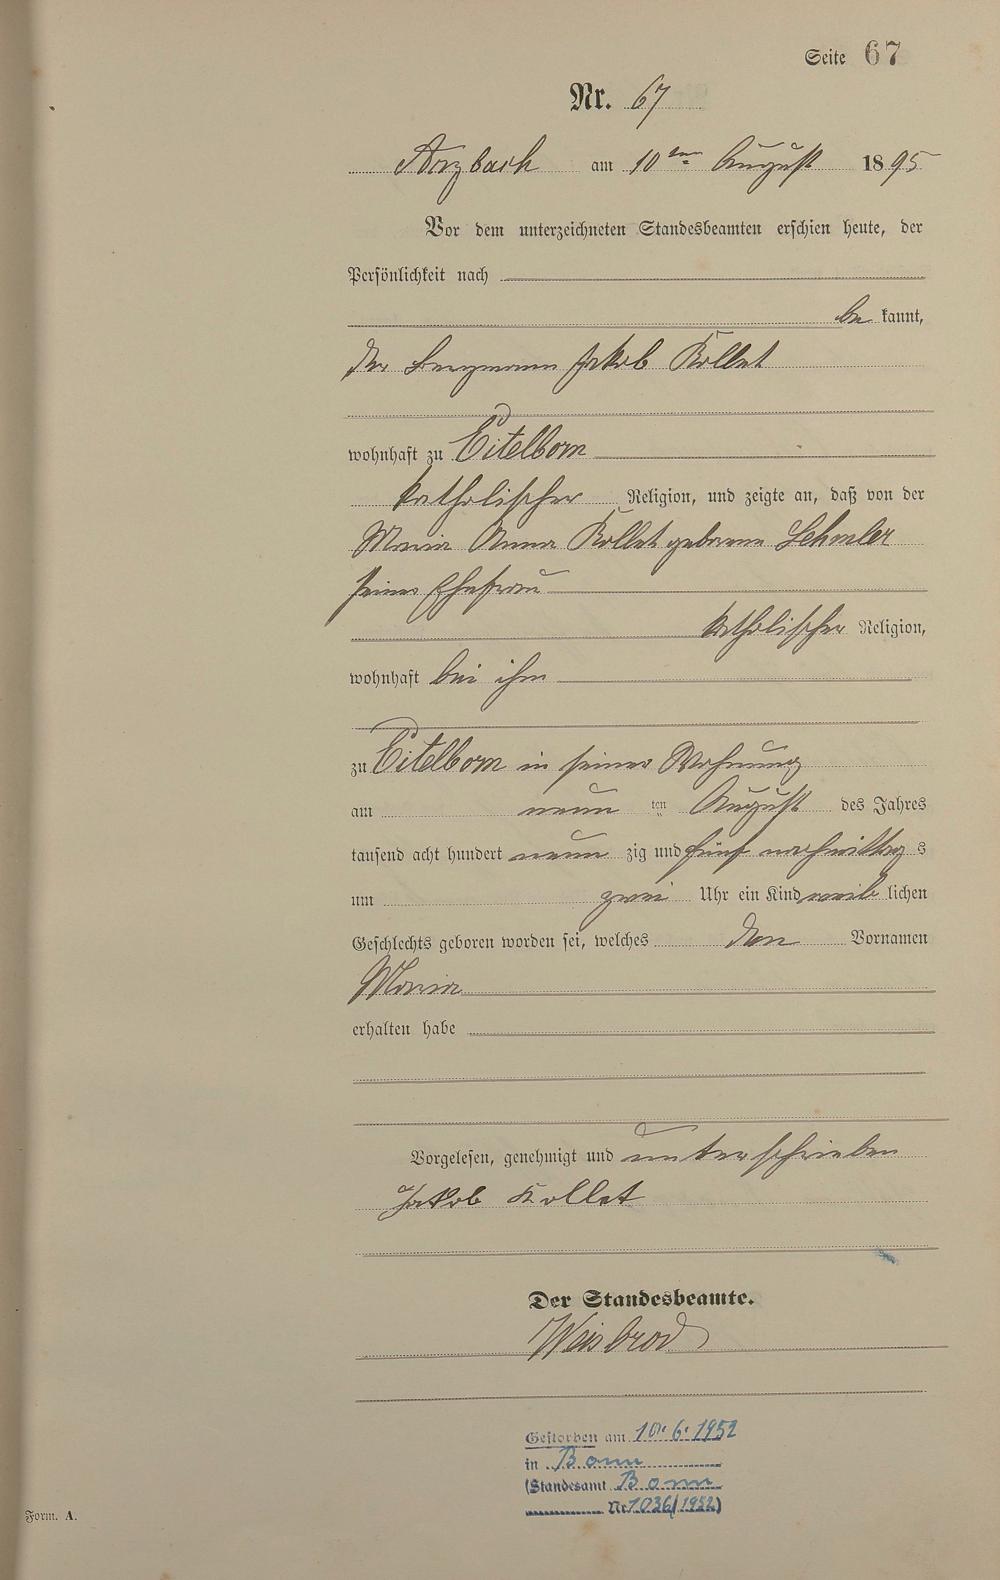 Seite 67
Nr. 67
Arzbach am 10ten August 1895
Vor dem unterzeichneten Standesbeamten erschien heute, der
Persönlichkeit nach
be kannt,
der Bergmann Jakob Kollet
wohnhaft zu Eitelborn
katholischer Religion, und zeigte an, daß von der
Maria Anna Kollet geborene Lehmler
seiner Ehefrau
katholischer Religion,
wohnhaft bei ihm
zu Eitelborn in seiner Wohnung
am neun ten August des Jahres
tausend acht hundert neun zig und fünf nachmittag s
um zwei Uhr ein Kind weib lichen
Geschlechts geboren worden sei, welches den Vornamen
Maria
erhalten habe
Vorgelesen, genehmigt und unterschrieben
Jakob Kollet
Der Standesbeamte.
Weisbrod
Gestorben am 10. 6. 1952
in Bonn
(Standesamt Bonn
Nr. 1036/1952)
Form. A.